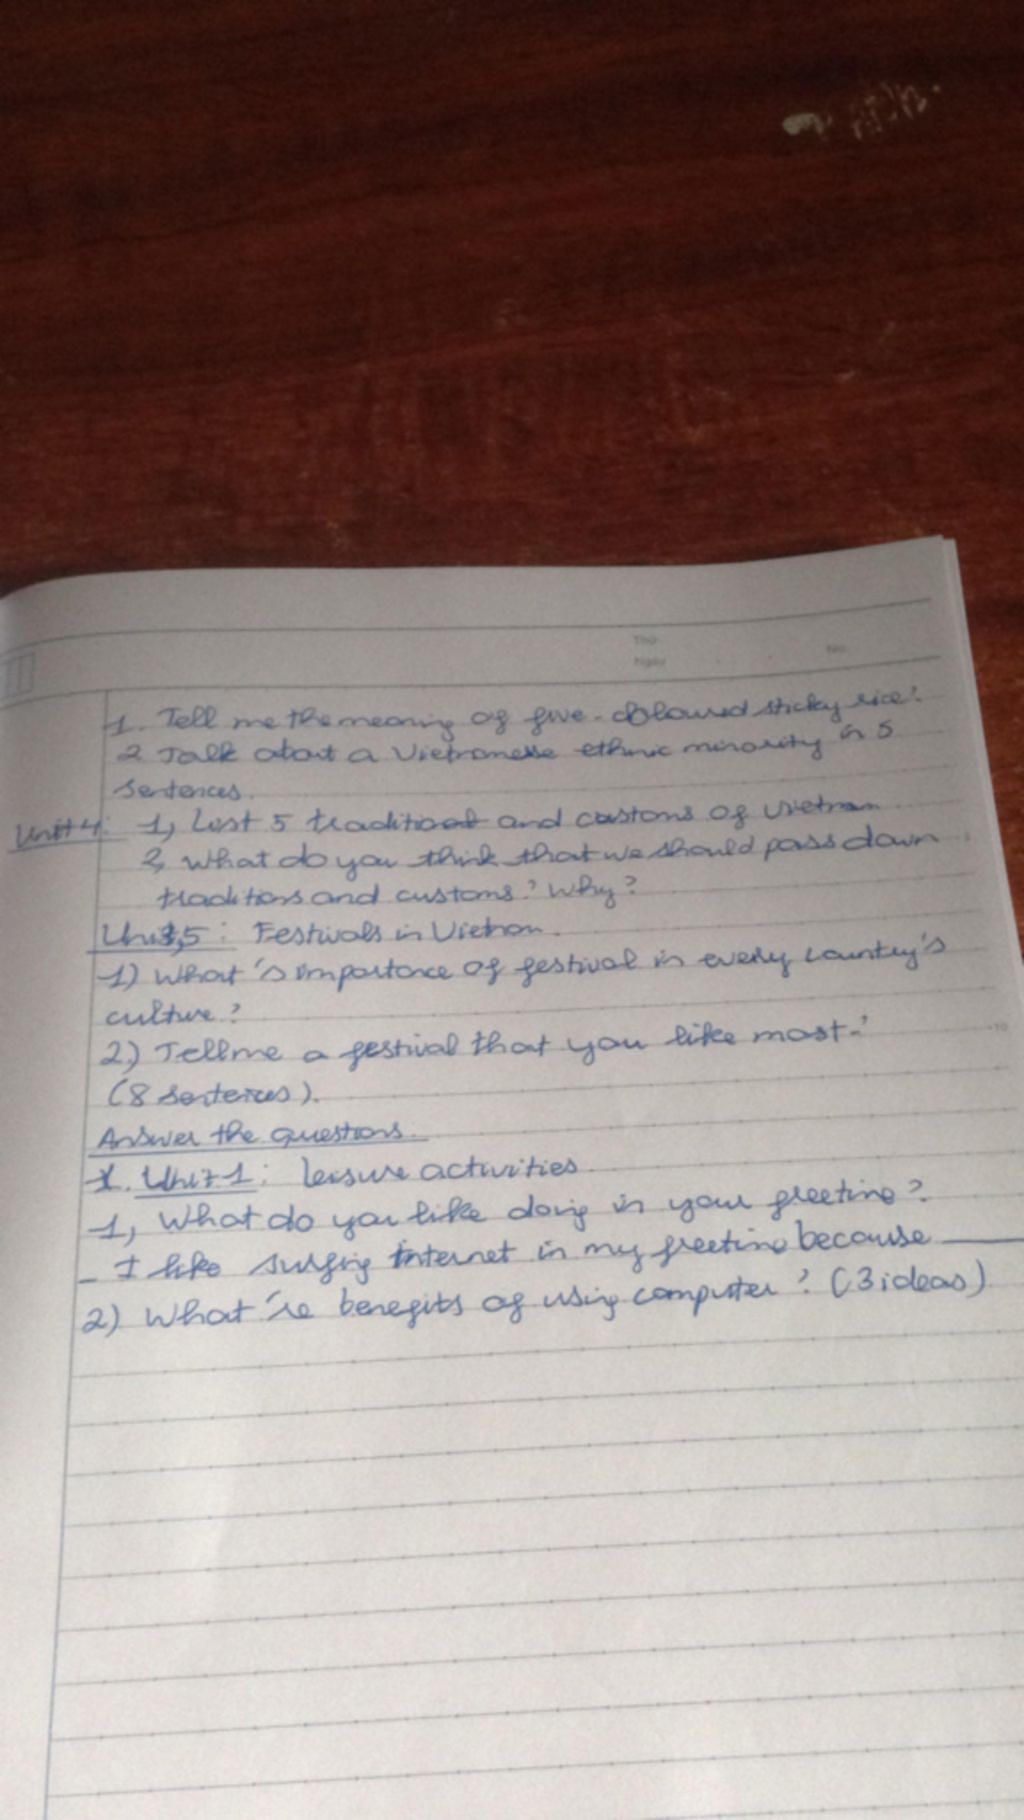 Thứ
Ngày
No.
1. Tell me the meaning of five-coloured sticky rice?
2. Talk about a Vietnamese ethnic minority in 5
sentences.
Unit 4: 1, List 5 traditional and customs of Vietnam
2, What do you think that we should pass down
traditions and customs? Why?
Unit 5: Festivals in Vietnam.
1) What's importance of festival in every country's
culture?
2) Tell me a festival that you like most?
(8 sentences).
Answer the questions.
Unit 1: leisure activities
1, What do you like doing in your freetime?
_ I like surfing internet in my freetime because ____
2) What 're benefits of using computer? (3 ideas)
10